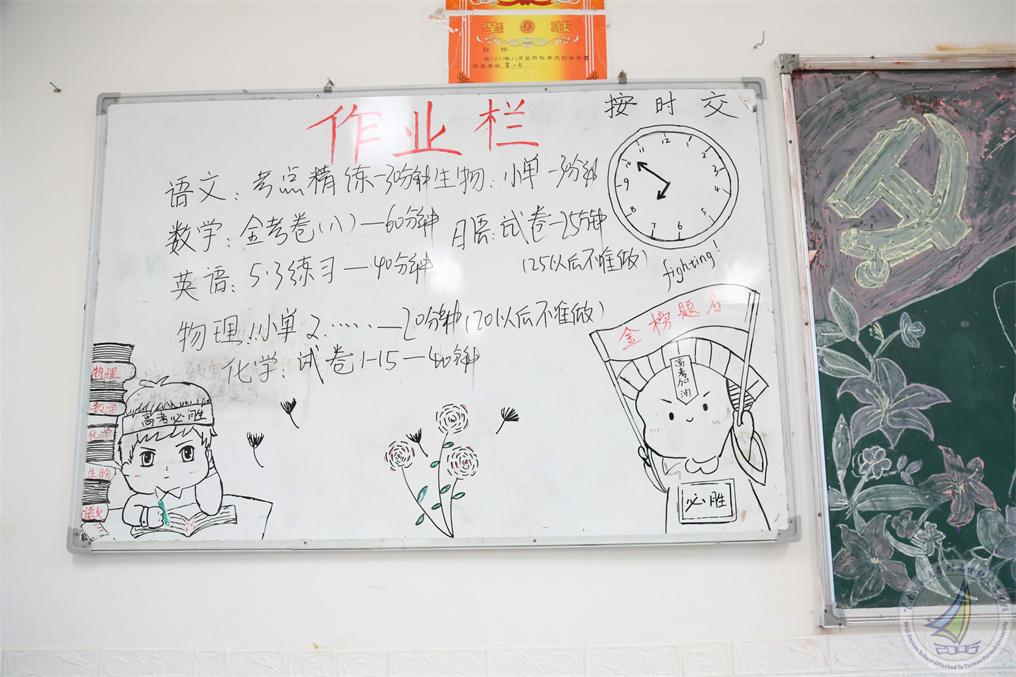 奖状
第一名
作业栏
按时交
语文：考点精练—30分钟
生物：小单—30分钟
数学：金考卷(八)—60分钟
日语：试卷—25分钟
(25以后不准做)
英语：5·3练习—40分钟
fighting!
物理小单2……—20分钟(20以后不准做)
化学：试卷1-15—40分钟
12
11
10
9
8
7
6
5
4
3
2
1
金榜题名
高考加油
必胜
物理
数学
化学
生物
语文
高考必胜